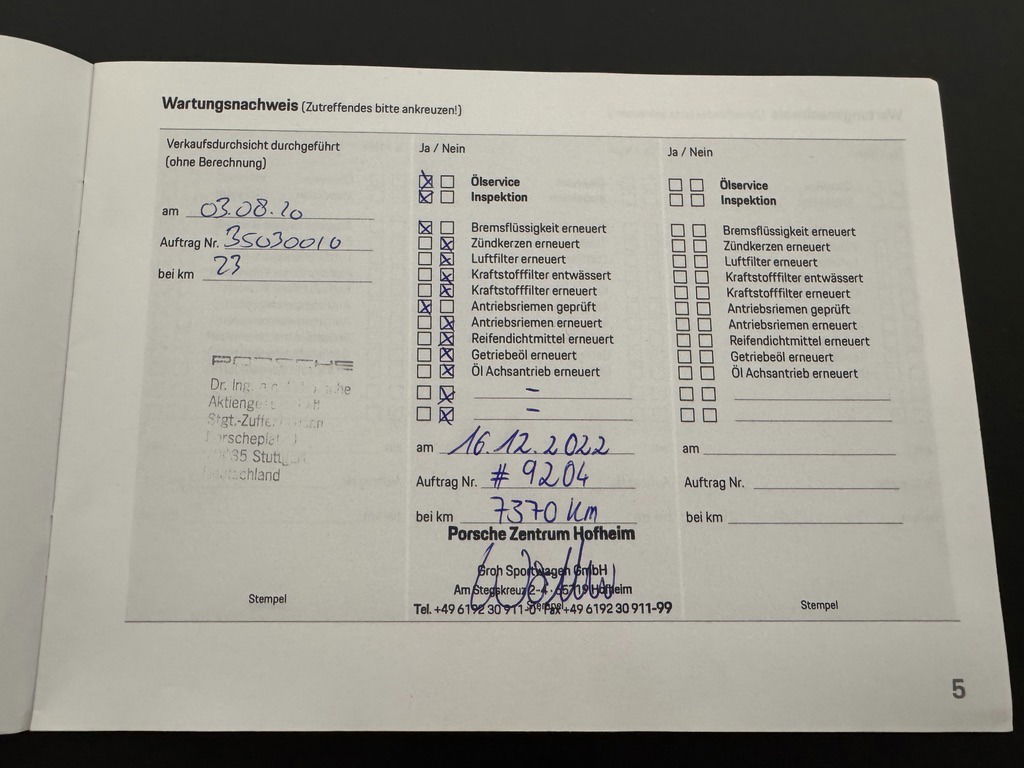 Wartungsnachweis (Zutreffendes bitte ankreuzen!)
Verkaufsdurchsicht durchgeführt
(ohne Berechnung)
am 03.08.20
Auftrag Nr. 35030010
bei km 23
PORSCHE
Dr. Ing.
Stgt.-Zuffe
Stempel
Ja / Nein
Ölservice
Inspektion
Bremsflüssigkeit erneuert
Zündkerzen erneuert
Luftfilter erneuert
Kraftstofffilter entwässert
Kraftstofffilter erneuert
Antriebsriemen geprüft
Antriebsriemen erneuert
Reifendichtmittel erneuert
Getriebeöl erneuert
Öl Achsantrieb erneuert
–
–
am 16.12.2022
Auftrag Nr. # 9204
bei km 7370 km
Porsche Zentrum Hofheim
Groh Sportwagen GmbH
Am Stegskreuz 2-4 · 65719 Hofheim
Stempel
Tel. +49 6192 30 911-0 · Fax +49 6192 30 911-99
Ja / Nein
Ölservice
Inspektion
Bremsflüssigkeit erneuert
Zündkerzen erneuert
Luftfilter erneuert
Kraftstofffilter entwässert
Kraftstofffilter erneuert
Antriebsriemen geprüft
Antriebsriemen erneuert
Reifendichtmittel erneuert
Getriebeöl erneuert
Öl Achsantrieb erneuert
am
Auftrag Nr.
bei km
Stempel
5